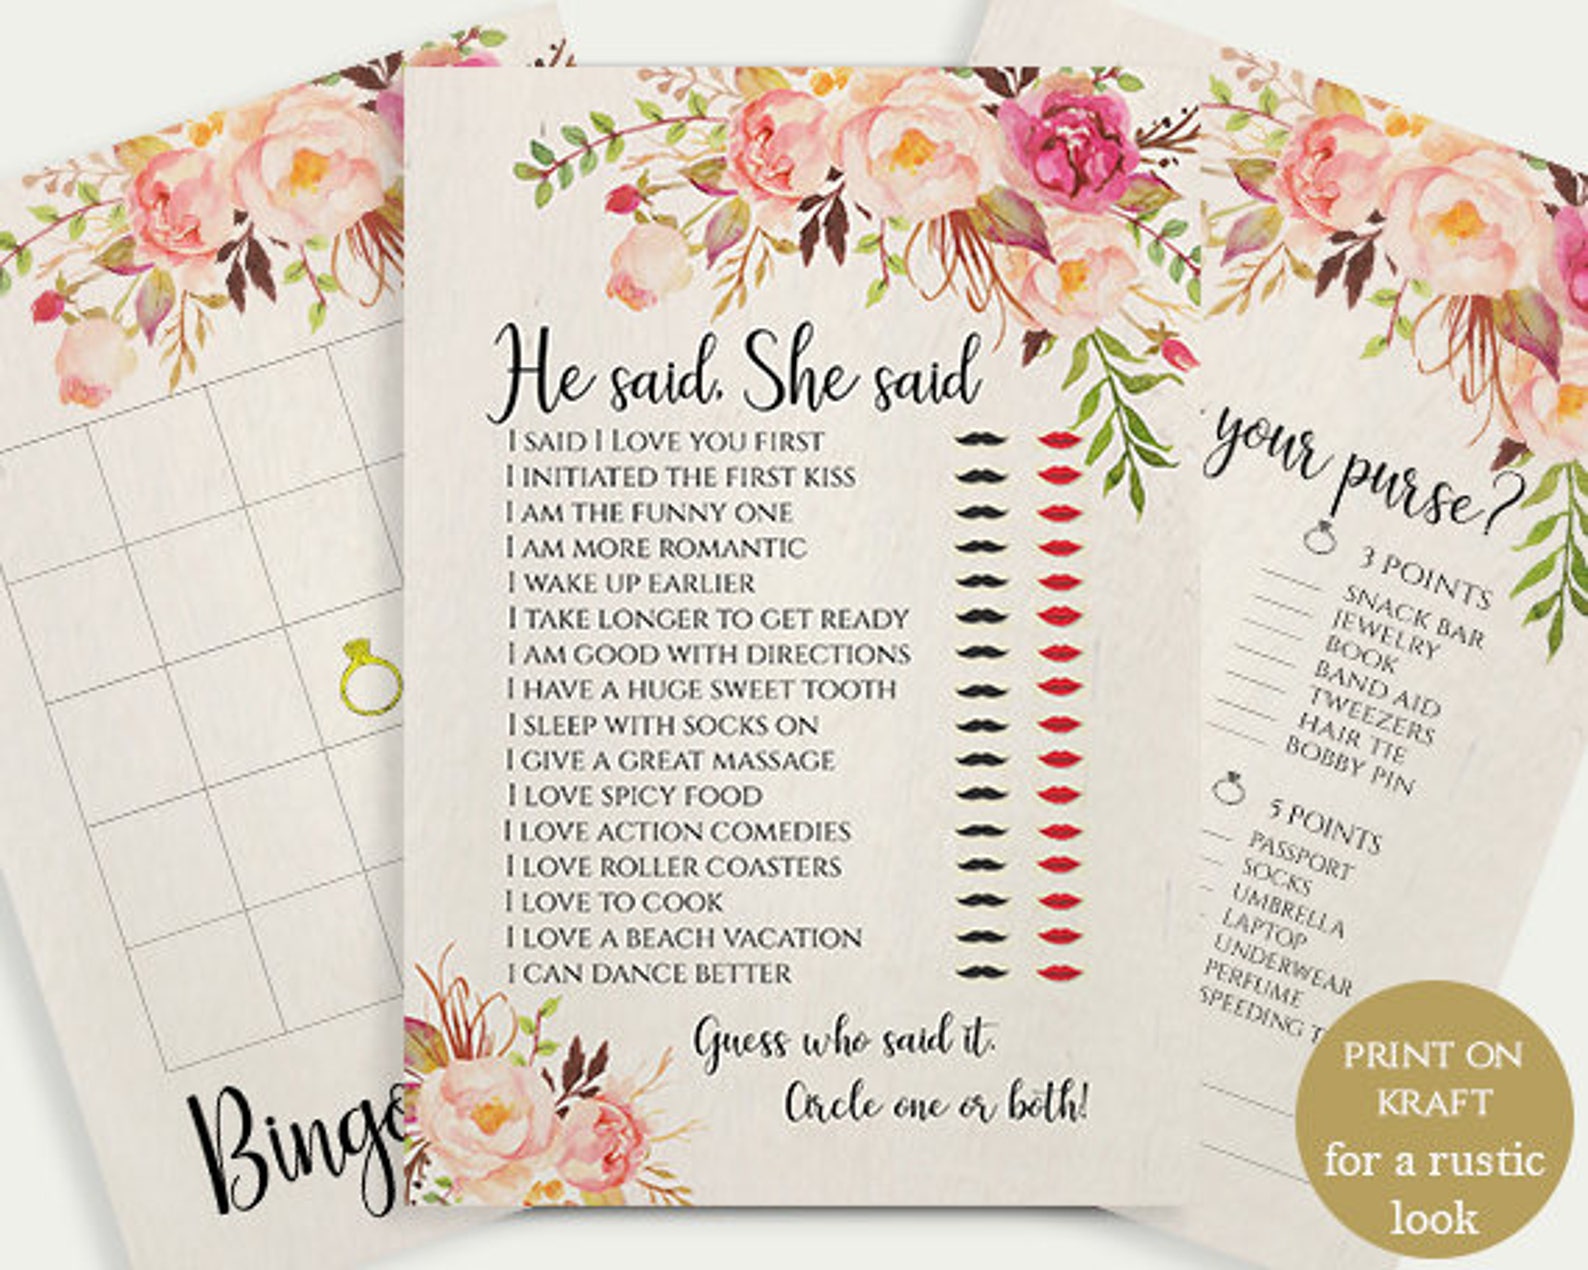 He said, She said
I SAID I LOVE YOU FIRST
I INITIATED THE FIRST KISS
I AM THE FUNNY ONE
I AM MORE ROMANTIC
I WAKE UP EARLIER
I TAKE LONGER TO GET READY
I AM GOOD WITH DIRECTIONS
I HAVE A HUGE SWEET TOOTH
I SLEEP WITH SOCKS ON
I GIVE A GREAT MASSAGE
I LOVE SPICY FOOD
I LOVE ACTION COMEDIES
I LOVE ROLLER COASTERS
I LOVE TO COOK
I LOVE A BEACH VACATION
I CAN DANCE BETTER
Guess who said it.
Circle one or both!
Bingo
your purse?
3 POINTS
SNACK BAR
JEWELRY
BOOK
BAND AID
TWEEZERS
HAIR TIE
BOBBY PIN
5 POINTS
PASSPORT
SOCKS
UMBRELLA
LAPTOP
UNDERWEAR
PERFUME
SPEEDING
PRINT ON
KRAFT
for a rustic
look